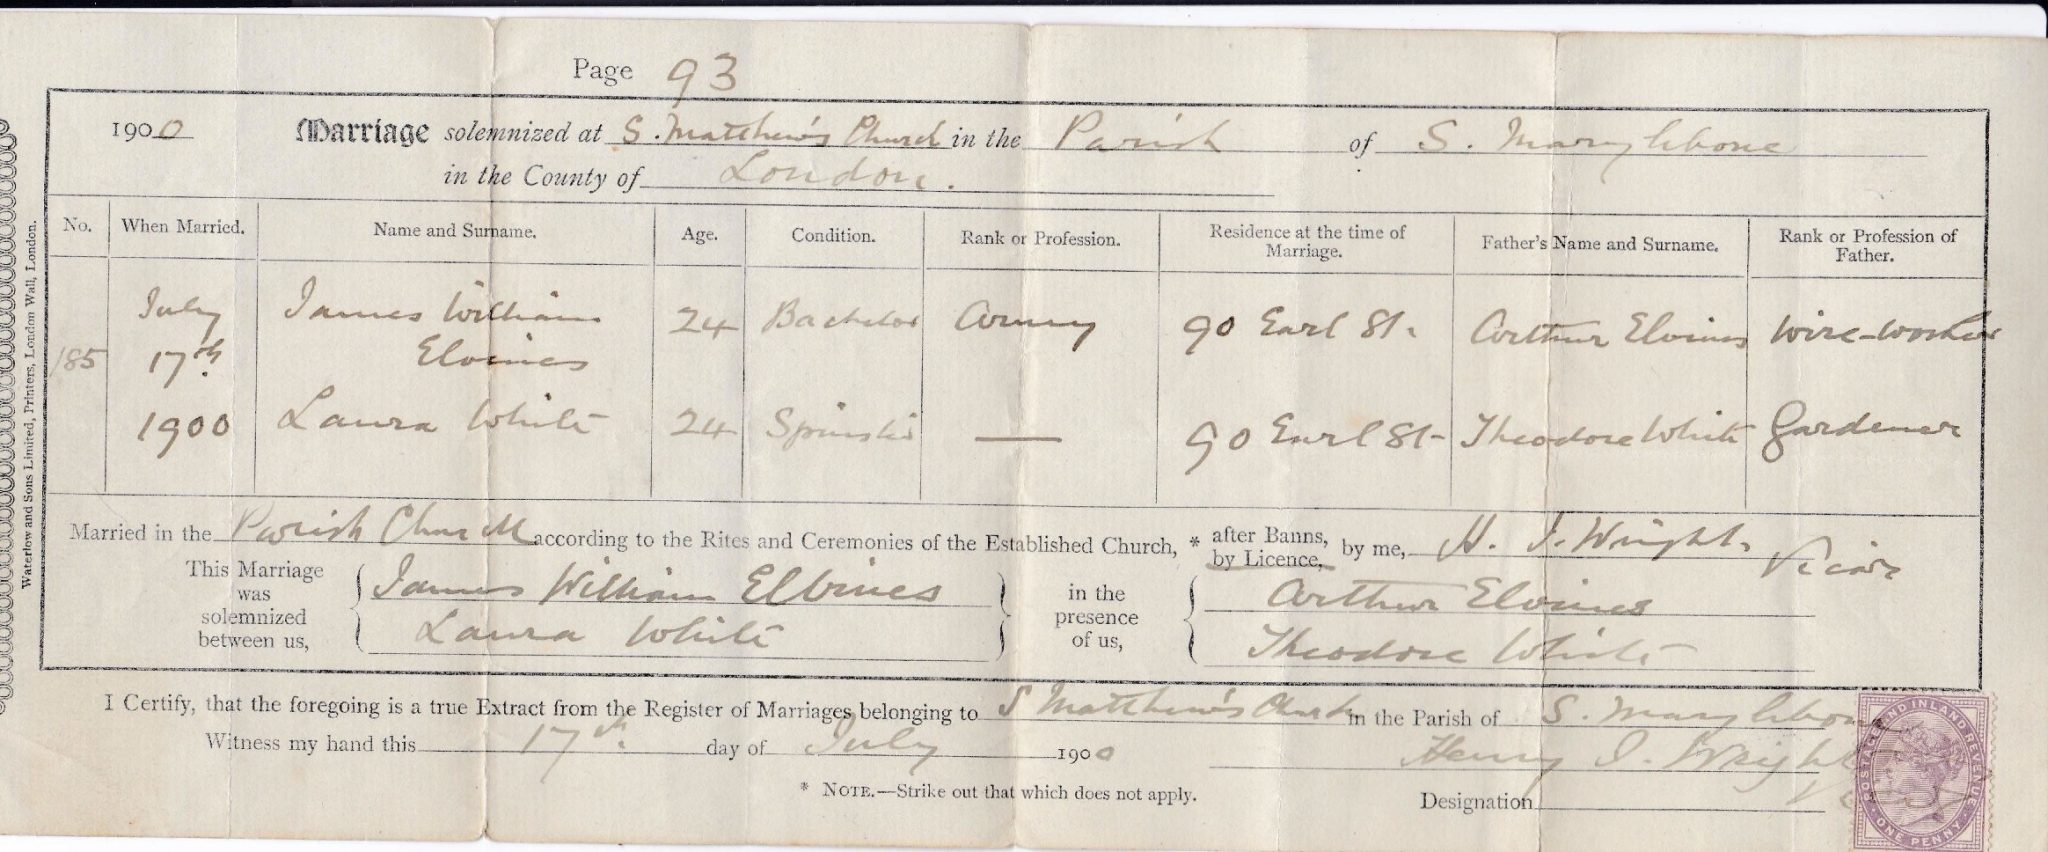 Page 93
1900 Marriage solemnized at S. Matthew's Church in the Parish of S. Marylebone
in the County of London.
No. When Married. Name and Surname. Age. Condition. Rank or Profession. Residence at the time of Marriage. Father's Name and Surname. Rank or Profession of Father.
July James William 24 Bachelor Army 90 Earl St. Arthur Elvines Wire-worker
185 17th Elvines
1900 Laura White 24 Spinster — 90 Earl St- Theodore White Gardener
Married in the Parish Church according to the Rites and Ceremonies of the Established Church, * after Banns, by Licence, by me, H. I. Wright. Vicar
This Marriage was solemnized between us, James William Elvines in the presence of us, Arthur Elvines
Laura White Theodore White
I Certify, that the foregoing is a true Extract from the Register of Marriages belonging to S Matthew's Church in the Parish of S. Marylebone
Witness my hand this 17th. day of July 1900 Henry I. Wright
* NOTE.—Strike out that which does not apply. Designation
POSTAGE AND INLAND REVENUE
ONE PENNY
Waterlow and Sons Limited, Printers, London Wall, London.